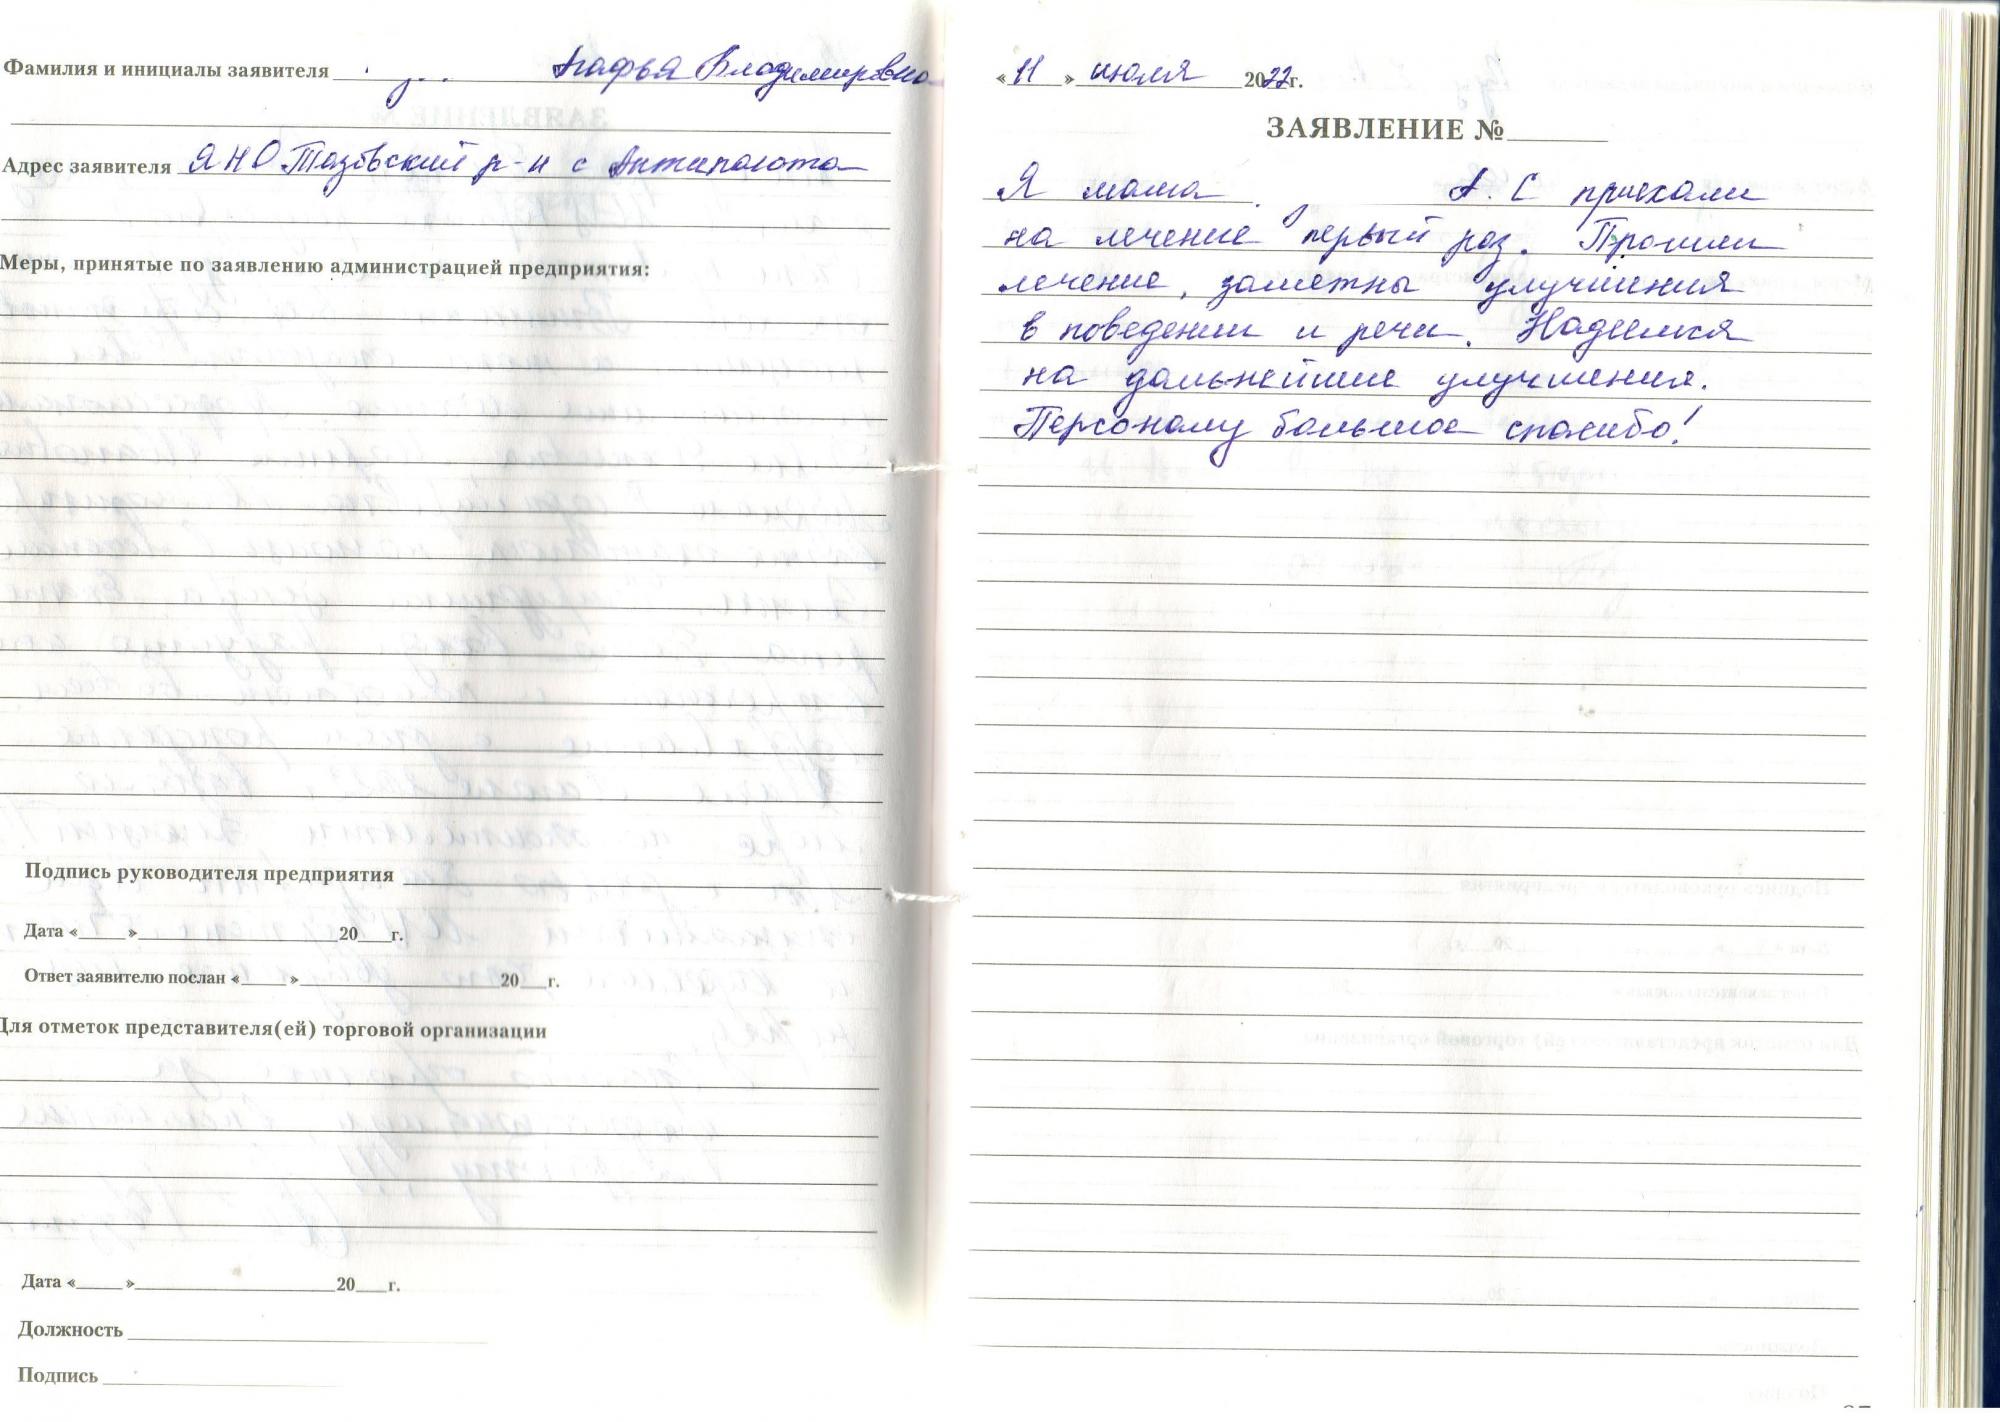 Фамилия и инициалы заявителя Агафья Владимировна
Адрес заявителя ЯНО Тазовский р-н с Антипаюта
Меры, принятые по заявлению администрацией предприятия:
Подпись руководителя предприятия
Дата «____» ____ 20__г.
Ответ заявителю послан «____» ____ 20__г.
Для отметок представителя(ей) торговой организации
Дата «____» ____ 20__г.
Должность
Подпись
«11» июля 2022г.
ЗАЯВЛЕНИЕ №
Я мама А. С приехали
на лечение первый раз. Прошли
лечение, заметны улучшения
в поведении и речи. Надеемся
на дальнейшие улучшения.
Персоналу большое спасибо!